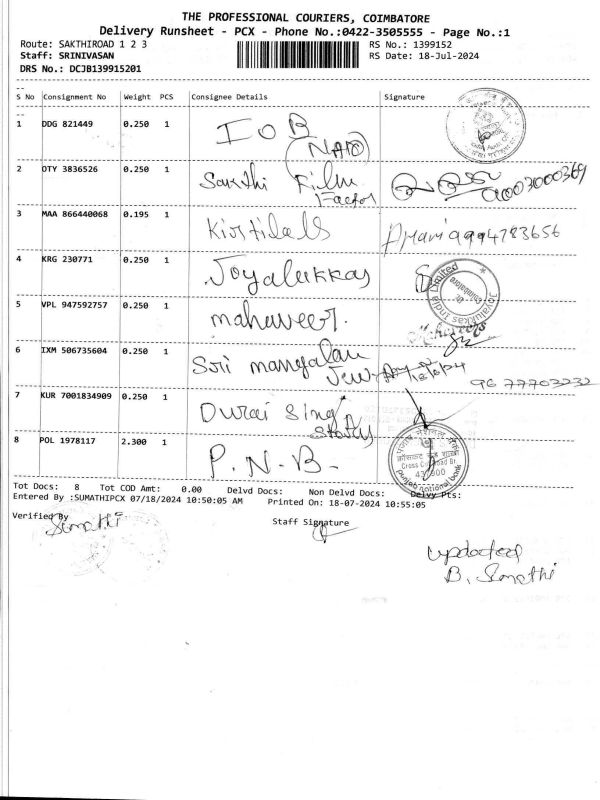 THE PROFESSIONAL COURIERS, COIMBATORE
Delivery Runsheet - PCX - Phone No.:0422-3505555 - Page No.:1
Route: SAKTHIROAD 1 2 3 RS No.: 1399152
Staff: SRINIVASAN RS Date: 18-Jul-2024
DRS No.: DCJB139915201
S No Consignment No Weight PCS Consignee Details Signature
1 DDG 821449 0.250 1 IOB
2 OTY 3836526 0.250 1 Sakthi Film
Factor
3 MAA 866440068 0.195 1 Kirtilals 9994783656
4 KRG 230771 0.250 1 Joyalukkas Joyalukkas India Limited
5 VPL 947592757 0.250 1 mahaveer.
6 IXM 506735604 0.250 1 Sri mangalam
Jew
7 KUR 7001834909 0.250 1 Durai Sing
8 POL 1978117 2.300 1 P.N.B. Cross Cut Road Br.
punjab national bank
Tot Docs: 8 Tot COD Amt: 0.00 Delvd Docs: Non Delvd Docs: Delvy Pts:
Entered By :SUMATHIPCX 07/18/2024 10:50:05 AM Printed On: 18-07-2024 10:55:05
Verified By Sumathi Staff Signature
updated
B. Sumathi